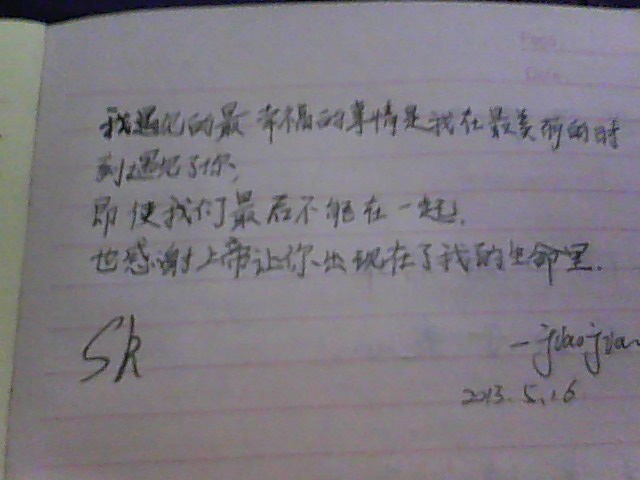 Page.
Date.
我遇见的最幸福的事情是我在最美丽的时
刻遇见了你,
即使我们最后不能在一起,
也感谢上帝让你出现在了我的生命里.
SR
2013.5.16